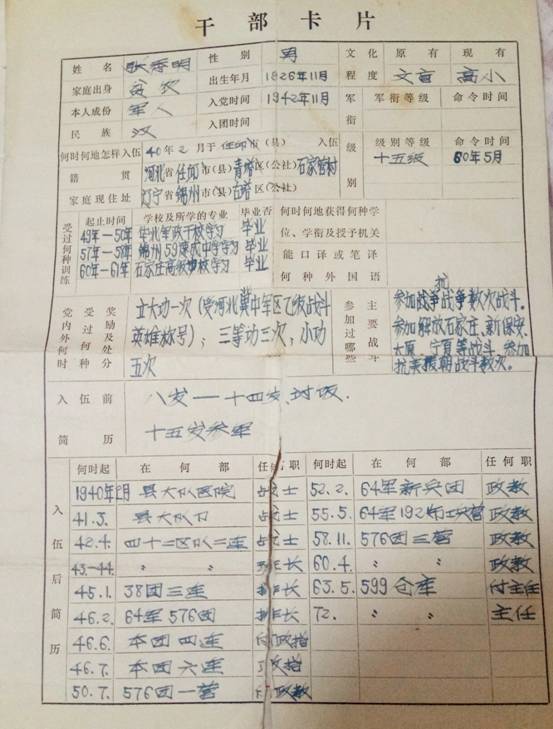 干部卡片
姓名 耿秀明 性别 男 文化程度 原有 文盲 现有 高小
家庭出身 贫农 出生年月 1926年11月
本人成份 军人 入党时间 1942年11月 军衔 军衔等级 命令时间
民族 汉 入团时间
何时何地怎样入伍 40年2月于任邱市(县)入伍 级别 级别等级 命令时间
籍贯 河北省任邱市(县)青塔区(公社)石家营村 十五级 60年5月
家庭现住址 辽宁省锦州市(县)古塔区(公社)
受过何种训练 起止时间 学校及所学的专业 毕业否 何时何地获得何种学位、学衔及授予机关
49年—50年 华北军政干校学习 毕业
57年—58年 锦州59速成中学学习 毕业 能口译或笔译何种外国语
60年—61年 石家庄高级步校学习 毕业
党内外受过何时何种奖励及处分 立大功一次(受河北冀中军区乙级战斗
英雄称号);三等功三次,小功
五次
主要参加过哪些战斗 参加抗战争战争数次战斗。
参加解放石家庄、新保安、
太原、宁夏等战斗。参加
抗美援朝战斗数次。
入伍前简历 八岁—十四岁、讨饭.
十五岁参军
入伍后简历 何时起 在何部 任何职 何时起 在何部 任何职
1940年2月 县大队医院 战士 52.2. 64军新兵团 政教
41.3. 县大队 战士 55.5. 64军192师 营 政教
42.4. 四十二区队二连 战士 58.11. 576团三营 政教
43—44. 〃 〃 班长 60.4. 〃 〃 政教
45.1. 38团三连 排长 63.5. 599仓库 付主任
46.2. 64军576团 排长 72. 〃 〃 主任
46.6. 本团四连 付政指
46.7. 本团六连 政指
50.7. 576团一营 付政教